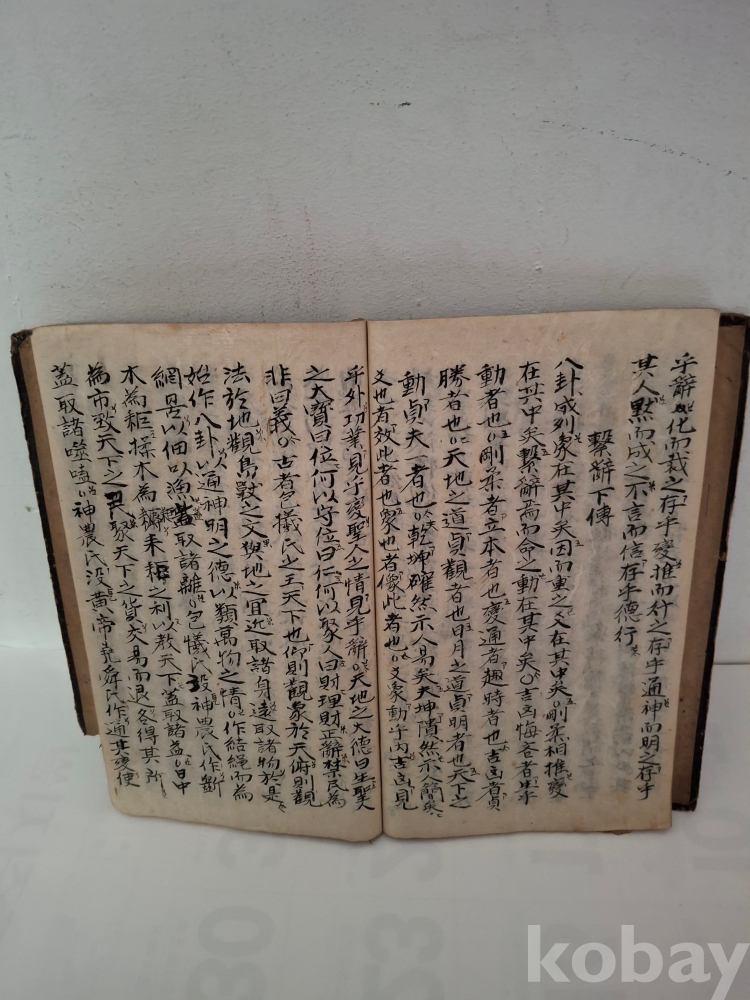 乎辭化而裁之存乎變推而行之存乎通神而明之存乎
其人默而成之不言而信存乎德行
繫辭下傳
八卦成列象在其中矣因而重之爻在其中矣剛柔相推變
在其中矣繫辭焉而命之動在其中矣吉凶悔吝者生乎
動者也剛柔者立本者也變通者趣時者也吉凶者貞
勝者也天地之道貞觀者也日月之道貞明者也天下之
動貞夫一者也乾確然示人易矣夫坤隤然示人簡矣
爻也者效此者也象也者像此者也爻象動乎內吉凶見
乎外功業見乎變聖人之情見乎辭天地之大德曰生聖人
之大寶曰位何以守位曰仁何以聚人曰財理財正辭禁民為
非曰義古者包犧氏之王天下也仰則觀象於天俯則觀
法於地觀鳥獸之文與地之宜近取諸身遠取諸物於是
始作八卦以通神明之德以類萬物之情作結繩而為
網罟以佃以漁蓋取諸離包犧氏沒神農氏作斲
木為耜揉木為耒耨之利以教天下蓋取諸益日中
為市致天下之民聚天下之貨交易而退各得其所
蓋取諸噬嗑神農氏沒黃帝堯舜氏作通其變使
kobay